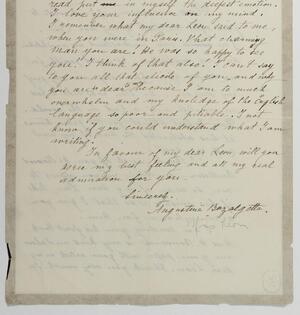 read, put me in myself the deepest emotion.
I love your influence on my mind.
I remember what my dear Leon said to me,
when you were in Paris. What charming
man you are! He was so happy to see
you! I think of that also. I can't say
to you all that of you, and why
you are dear because I am to much
overwhelm and my knoledge of the English
language so poor and pitiable. I not
know if you could understand what I am
writing.
In favour of my dear Leon will you
my best feeling and all my real
admiration for you.
Sincerely,
Augustine Bazalgette
Leon